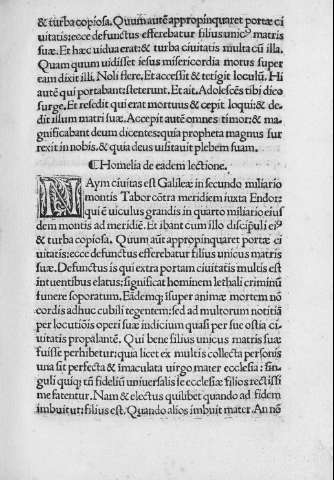 & turba copiosa. Quum autē appropinquaret portæ ci
uitatis: ecce defunctus efferebatur filius unicꝰ matris
suæ. Et hæc uidua erat: & turba ciuitatis multa cū illa.
Quam quum uidisset iesus misericordia motus super
eam dixit illi. Noli flere. Et accessit & tetigit loculū. Hi
autē qui portabant: steterunt. Et ait. Adolescēs tibi dico
surge. Et resedit qui erat mortuus & cepit loqui: & de-
dit illum matri suæ. Accepit autē omnes timor: & ma-
gnificabant deum dicentes: quia propheta magnus sur
rexit in nobis. & quia deus uisitauit plebem suam.
¶ Homelia de eadem lectione.
NAym ciuitas est Galileæ in secundo miliario
montis Tabor cōtra meridiem iuxta Endor:
qui ē uiculus grandis in quarto miliario eius
dem montis ad meridiē. Et ibant cum illo discipuli eiꝰ
& turba copiosa. Quum aūt appropinquaret portæ ci
uitatis: ecce defunctus efferebatur filius unicus matris
suæ. Defunctus is qui extra portam ciuitatis multis est
intuentibus elatus: significat hominem lethali criminū
funere soporatum. Eādemq; īsuper animæ mortem nō
cordis adhuc cubili tegentem: sed ad multorum notitiā
per locutiōis operi suæ indicium quasi per suæ ostia ci-
uitatis propalantē. Qui bene filius unicus matris suæ
fuisse perhibetur: quia licet ex multis collecta personis
una sit perfecta & īmaculata uirgo mater ecclesia: sin-
guli quiq; tn̄ fideliū uniuersalis se ecclesiæ filios rectissi
me fatentur. Nam & electus quilibet quando ad fidem
imbuitur: filius est. Quando alios imbuit mater. An nō